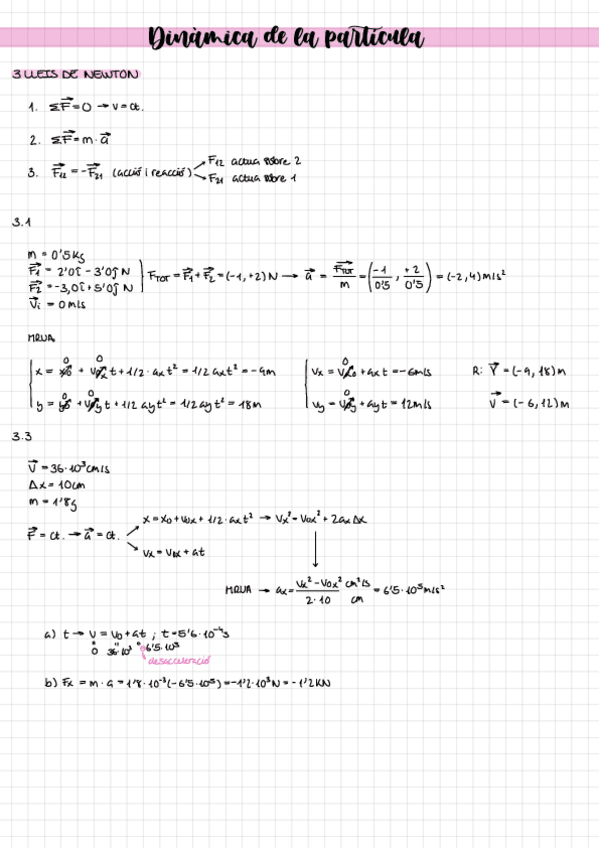 Dinàmica de la partícula
3 LLEIS DE NEWTON
1. ΣF⃗=0 → v=ct.
2. ΣF⃗=m·a⃗
3. F⃗12 = -F⃗21 (acció i reacció)
F12 actua sobre 2
F21 actua sobre 1
3.1
m = 0'5 kg
F⃗1 = 2'0î - 3'0ĵ N
F⃗2 = -3,0î + 5'0ĵ N
V⃗i = 0 m/s
FTOT = F⃗1 + F⃗2 = (-1, +2) N → a⃗ = F⃗TOT/m = (-1/0'5 , +2/0'5) = (-2, 4) m/s²
MRUA
x = x0 + v0x t + 1/2 · ax t² = 1/2 ax t² = -9m
0 0
y = y0 + v0y t + 1/2 ay t² = 1/2 ay t² = 18m
0 0
vx = vx0 + ax t = -6m/s
0
vy = v0y + ay t = 12m/s
0
R: r⃗ = (-9, 18) m
v⃗ = (-6, 12) m
3.3
v⃗ = 36·10³ cm/s
Δx = 10cm
m = 1'8g
F⃗ = ct. → a⃗ = ct.
x = x0 + v0x + 1/2 · ax t² → Vx² - V0x² + 2ax Δx
vx = v0x + at
MRUA → ax = Vx² - V0x² / 2·10 cm²/s / cm = 6'5·10⁵ m/s²
a) t → v = v0 + at ; t = 5'6·10⁻⁴s
0 36·10³ -6'5·10⁵
desacceleració
b) Fx = m · a = 1'8·10⁻³(-6'5·10⁵) = -1'2·10³ N = -1'2 KN